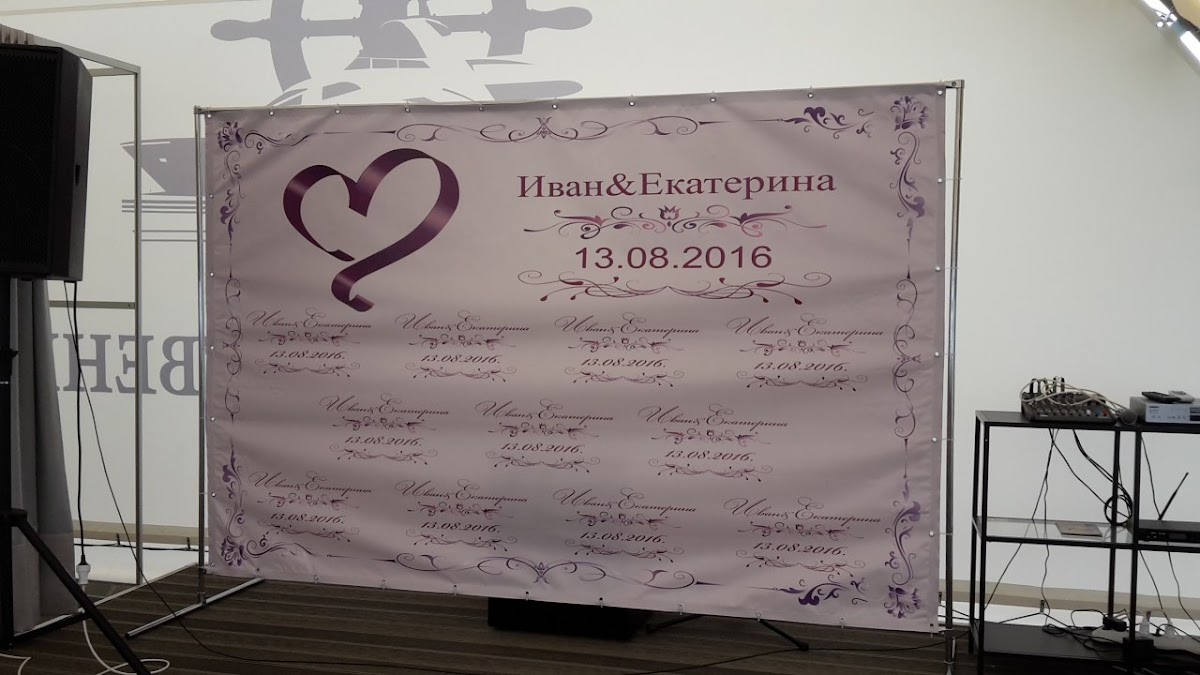 Иван&Екатерина
13.08.2016
Иван&Екатерина
13.08.2016.
Иван&Екатерина
13.08.2016.
Иван&Екатерина
13.08.2016.
Иван&Екатерина
13.08.2016.
Иван&Екатерина
13.08.2016.
Иван&Екатерина
13.08.2016.
Иван&Екатерина
13.08.2016.
Иван&Екатерина
13.08.2016.
Иван&Екатерина
13.08.2016.
Иван&Екатерина
13.08.2016.
Иван&Екатерина
13.08.2016.